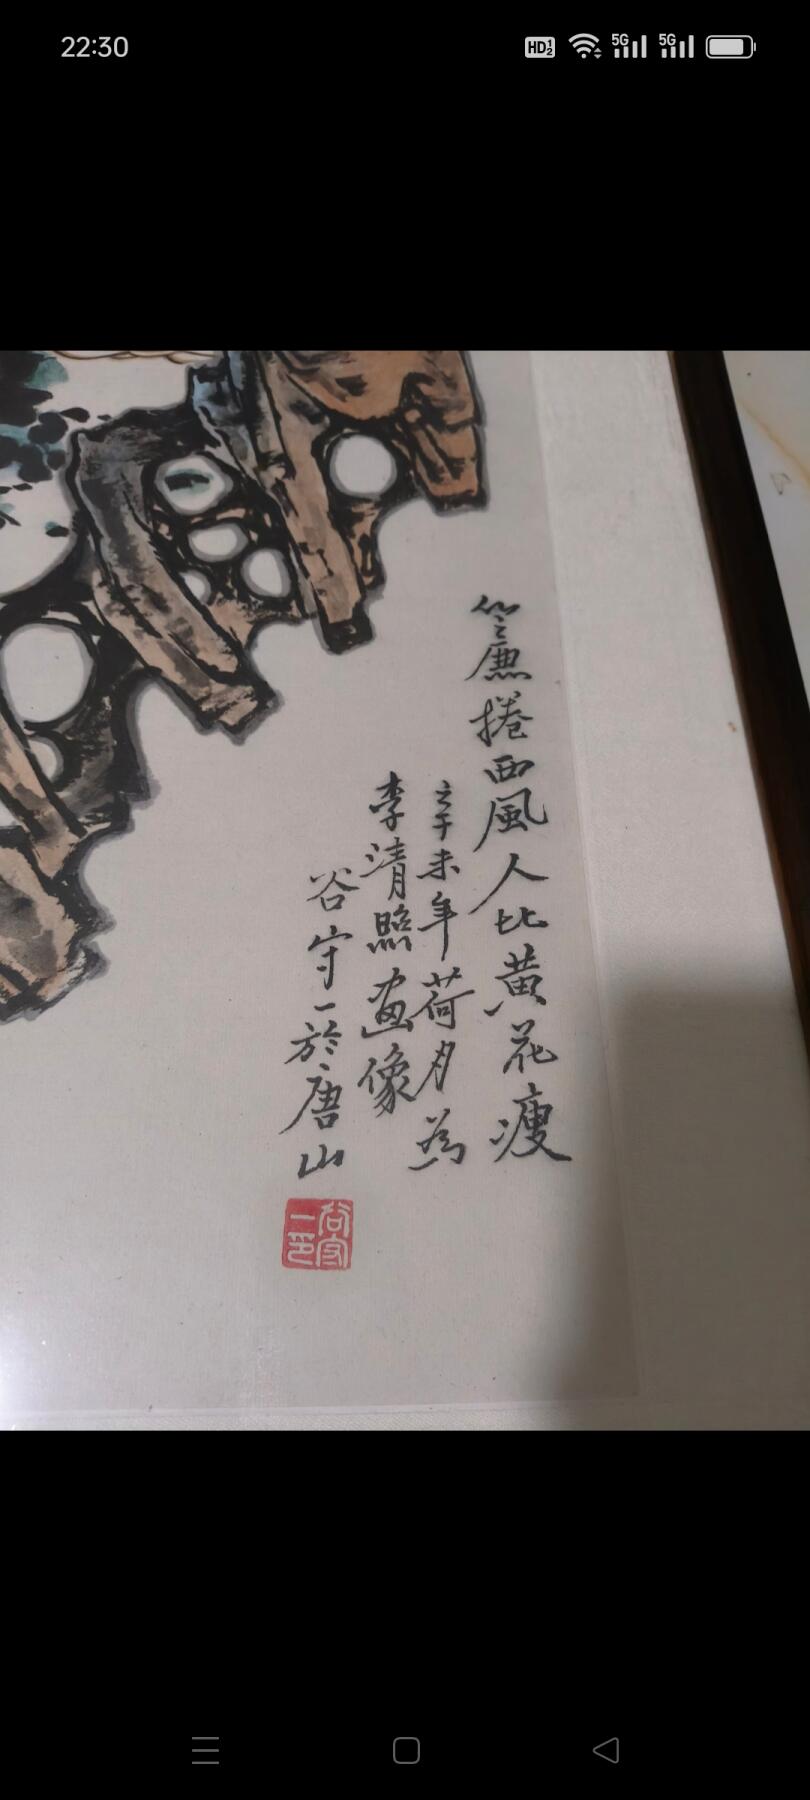 22:30
HD 1 2
5G
5G
簾捲西風人比黄花瘦
辛未年荷月為
李清照畫像
谷守一於唐山
谷守一印